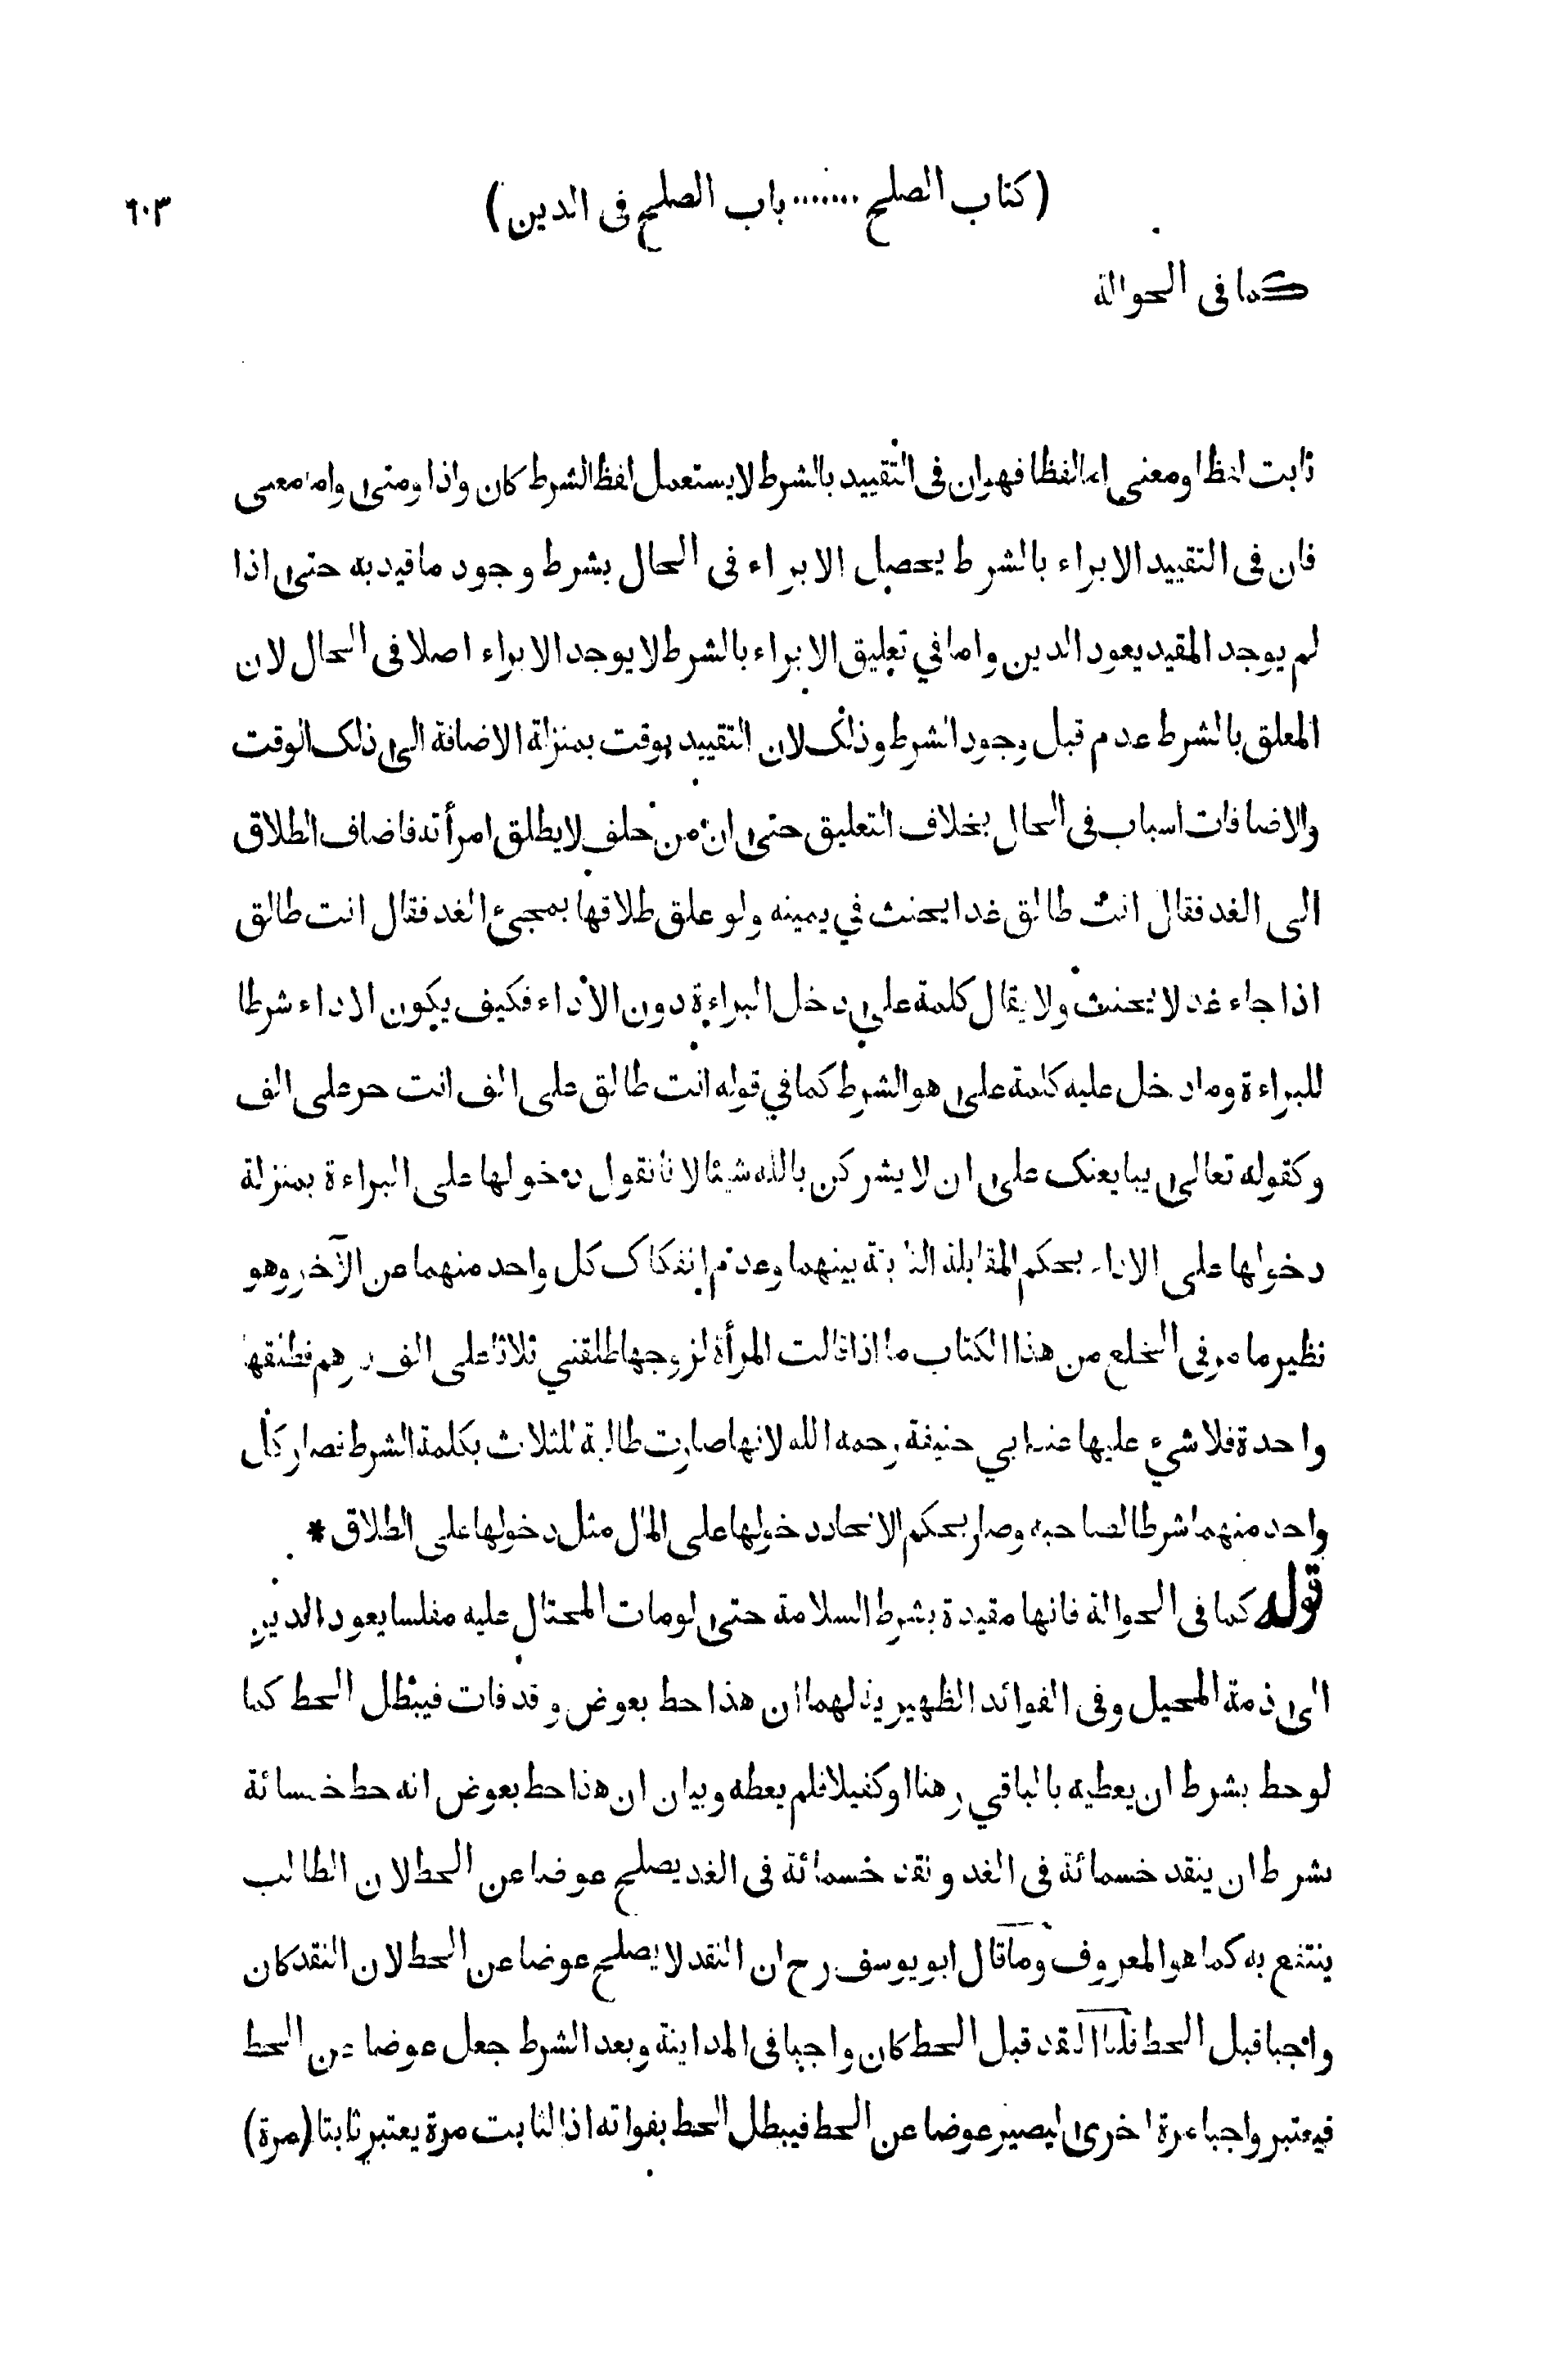 (كتاب الصلح ....... باب الصلح فى الدين) ٦٠٣
كما فى الحوالة
ثابت لفظا ومعنى اما لفظا فهو ان فى التقييد بالشرط لا يستعمل لفظ الشرط كان واذا ومتى واما معنى
فان فى التقييد الابراء بالشرط يحصل الابراء فى الحال بشرط وجود ما قيد به حتى اذا
لم يوجد المقيد يعود الدين واما في تعليق الابراء بالشرط لا يوجد الابراء اصلا فى الحال لان
المعلق بالشرط عدم قبل وجود الشرط وذلك لان التقييد بوقت بمنزلة الاضافة الى ذلك الوقت
والاضافات اسباب فى الحال بخلاف التعليق حتى ان من حلف لا يطلق امرأته فاضاف الطلاق
الى الغد فقال انت طالق غدا يحنث في يمينه ولو علق طلاقها بمجئ الغد فقال انت طالق
اذا جاء غد لا يحنث ولا يقال كلمة على دخل البراءة دون الاداء فكيف يكون الاداء شرطا
للبراءة وما دخل عليه كلمة على هو الشرط كما في قوله انت طالق على الف انت حر على الف
وكقوله تعالى يبايعنك على ان لا يشركن بالله شيئا لانا نقول دخولها على البراءة بمنزلة
دخولها على الاداء بحكم المقابلة الثابتة بينهما وعدم انفكاك كل واحد منهما عن الآخر وهو
نظير ما مر فى الخلع من هذا الكتاب ما اذا قالت المرأة لزوجها طلقني ثلاثا على الف درهم فطلقها
واحدة فلا شيء عليها عند ابي حنيفة رحمه الله لانها صارت طالبة للثلاث بكلمة الشرط فصار كل
واحد منهما شرطا لصاحبه وصار بحكم الاتحاد دخولها على المال مثل دخولها على الطلاق *
قوله كما فى الحوالة فانها مقيدة بشرط السلامة حتى لو مات المحتال عليه مفلسا يعود الدين
الى ذمة المحيل وفى الفوائد الظهيرية لهما ان هذا حط بعوض وقد فات فيبطل الحط كما
لو حط بشرط ان يعطيه بالباقي رهنا او كفيلا فلم يعطه وبيان ان هذا حط بعوض انه حط خمسائة
بشرط ان ينقد خسمائة فى الغد ونقد خسمائة فى الغد يصلح عوضا عن الحط لان الطالب
ينتفع به كما هو المعروف وما قال ابو يوسف رح ان النقد لا يصلح عوضا عن الحط لان النقد كان
واجبا قبل الحط قلنا النقد قبل الحط كان واجبا فى المداينة وبعد الشرط جعل عوضا عن الحط
فيعتبر واجبا مرة اخرى ليصير عوضا عن الحط فيبطل الحط بفواته اذ الثابت مرة يعتبر ثابتا (مرة)